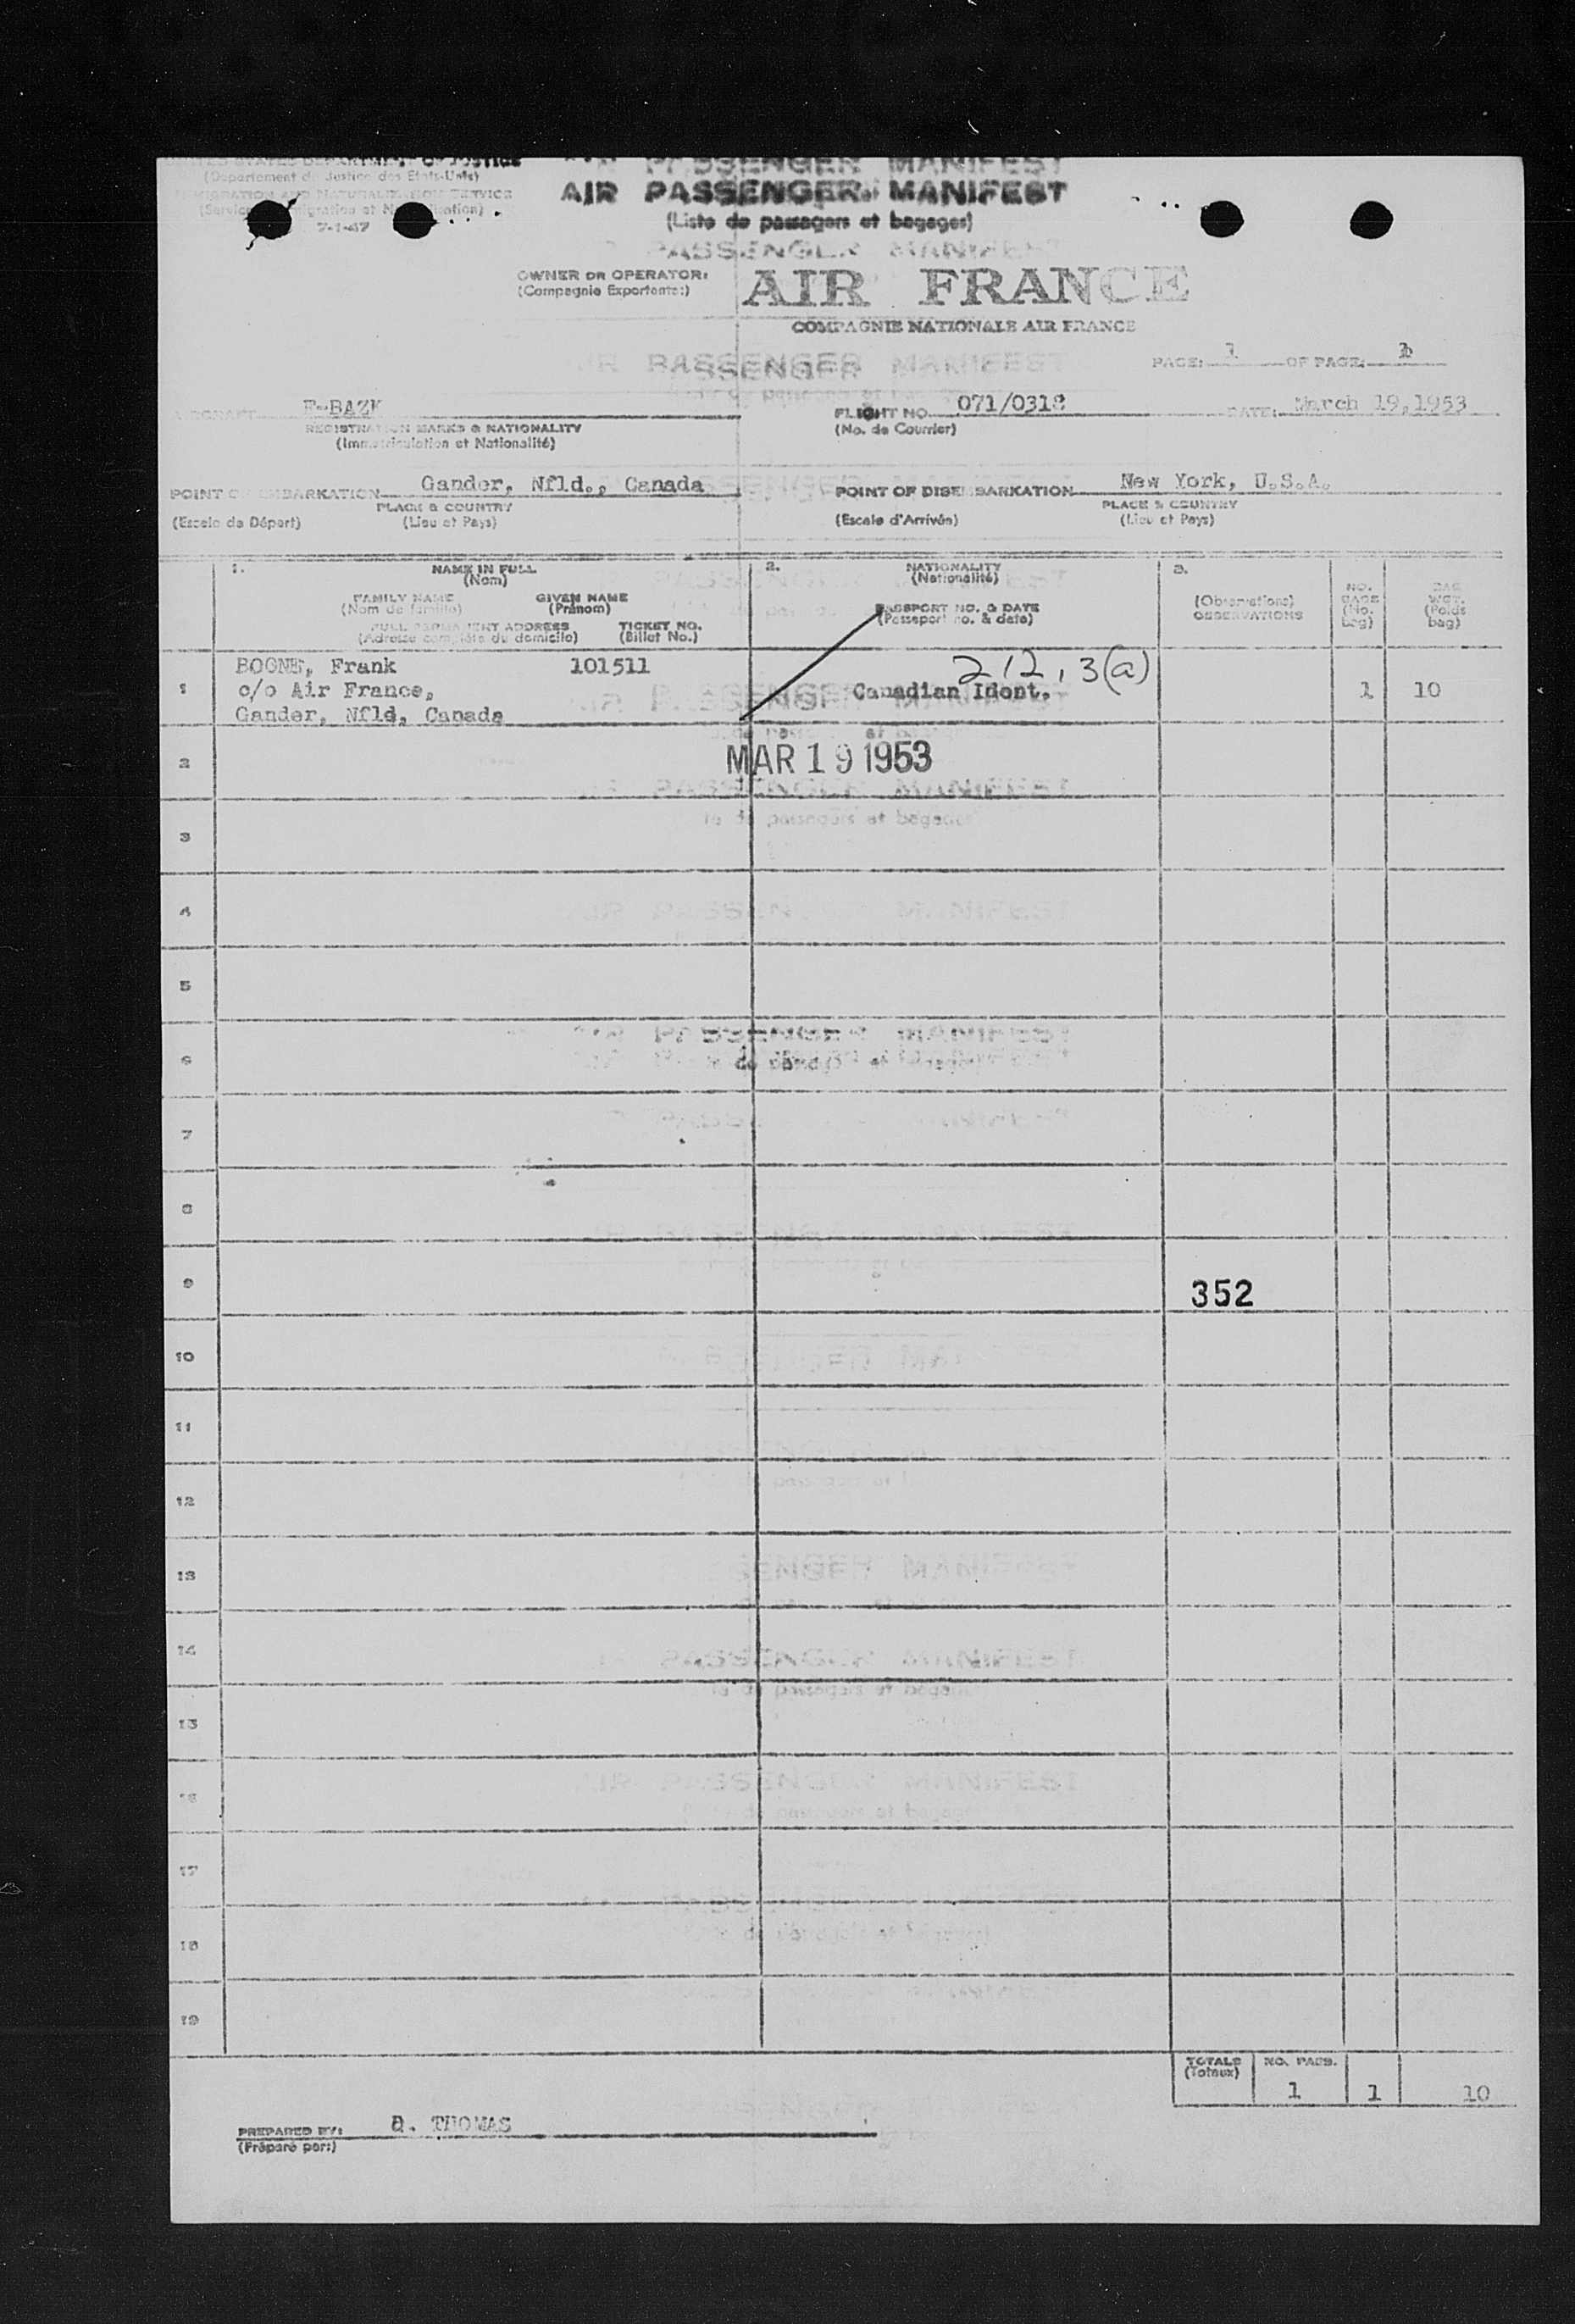 UNITED STATES DEPARTMENT OF JUSTICE
(Département de Justice des Etats-Unis)
IMMIGRATION AND NATURALIZATION SERVICE
7-1-47
AIR PASSENGER MANIFEST
(Liste de passagers et bagages)
OWNER OR OPERATOR:
(Compagnie Exportante:)
AIR FRANCE
COMPAGNIE NATIONALE AIR FRANCE
PAGE: 1 OF PAGE:
AIRCRAFT
REGISTRATION MARKS & NATIONALITY
(Immatriculation et Nationalité)
FLIGHT NO. 071/0318
(No. de Courrier)
DATE: March 19,1953
POINT OF EMBARKATION Gander, Nfld., Canada
PLACE & COUNTRY
(Escale de Départ) (Lieu et Pays)
POINT OF DISEMBARKATION New York, U.S.A.
PLACE & COUNTRY
(Escale d'Arrivée) (Lieu et Pays)
1. NAME IN FULL
(Nom)
FAMILY NAME GIVEN NAME
(Nom de famille) (Prénom)
FULL PERMANENT ADDRESS TICKET NO.
(Adresse complète du domicile) (Billet No.)
2. NATIONALITY
(Nationalité)
PASSPORT NO. & DATE
(Passeport no. & date)
3.
(Observations)
OBSERVATIONS
NO.
BAGS
(No.
bag)
BAG
WGT.
(Poids
bag)
1 BOGNE, Frank 101511
c/o Air France,
Gander, Nfld, Canada
212.3(a)
Canadian Ident.
1 10
MAR 19 1953
2
3
4
5
6
7
8
9
352
10
11
12
13
14
15
16
17
18
19
TOTALS
(Totaux)
NO. PASS.
1 1 10
PREPARED BY: THOMAS
(Préparé par:)